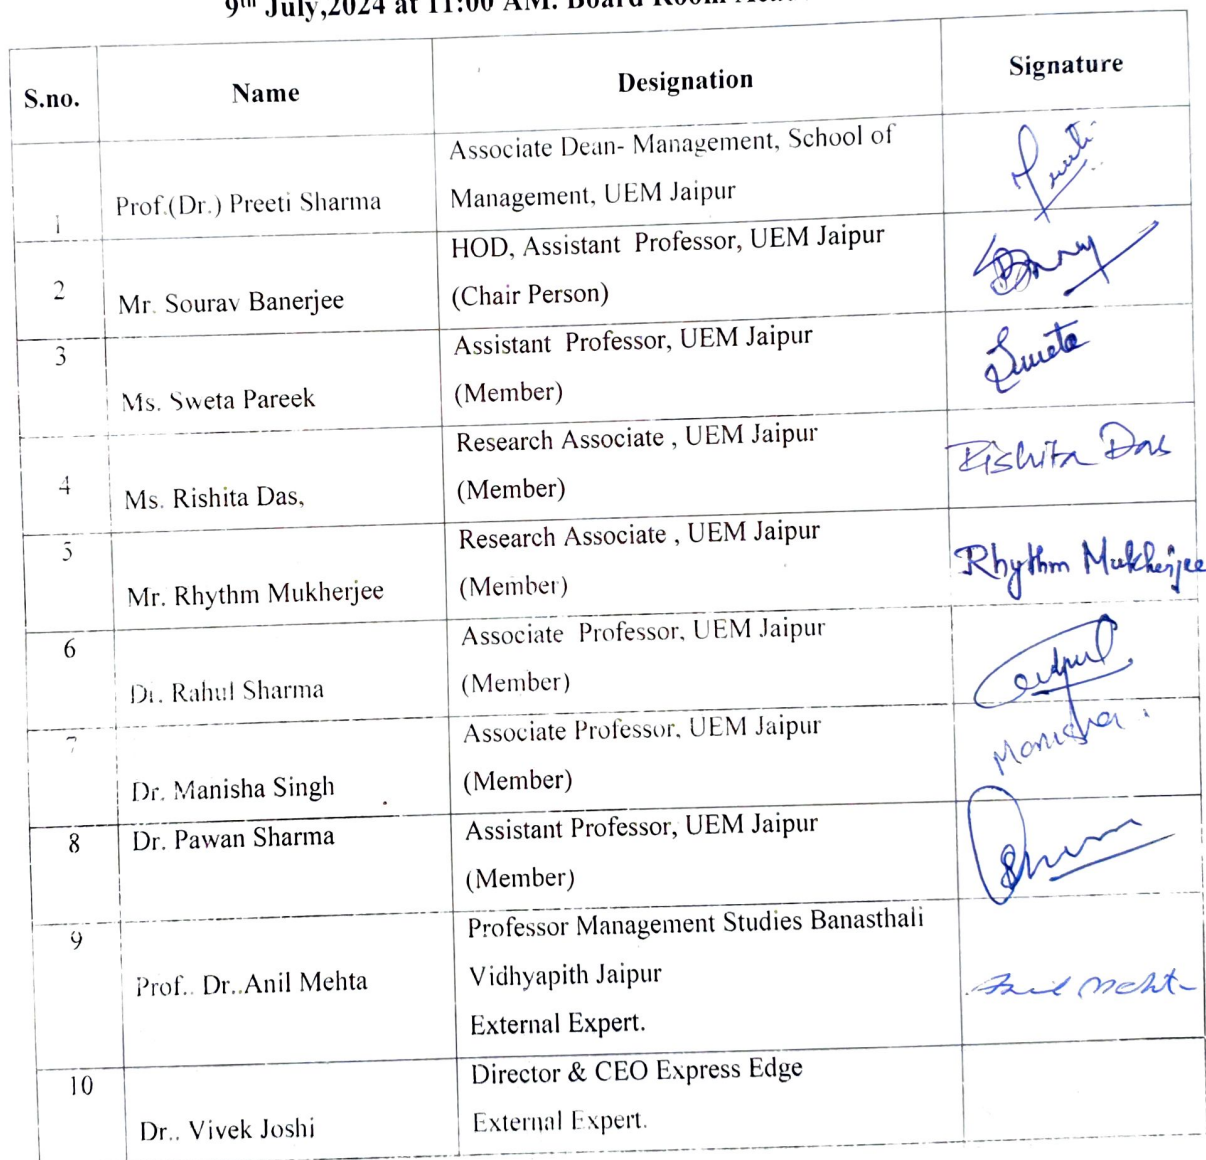 9th July,2024 at 11:00 AM. Board Room
S.no. Name Designation Signature
1 Prof.(Dr.) Preeti Sharma Associate Dean- Management, School of
Management, UEM Jaipur
Preeti
2 Mr. Sourav Banerjee HOD, Assistant Professor, UEM Jaipur
(Chair Person)
3 Ms. Sweta Pareek Assistant Professor, UEM Jaipur
(Member)
Sweta
4 Ms. Rishita Das, Research Associate , UEM Jaipur
(Member)
Rishita Das
5 Mr. Rhythm Mukherjee Research Associate , UEM Jaipur
(Member)
Rhythm Mukherjee
6 Dr. Rahul Sharma Associate Professor, UEM Jaipur
(Member)
7 Dr. Manisha Singh Associate Professor, UEM Jaipur
(Member)
Manisha.
8 Dr. Pawan Sharma Assistant Professor, UEM Jaipur
(Member)
9 Prof.. Dr..Anil Mehta Professor Management Studies Banasthali
Vidhyapith Jaipur
External Expert.
Anil Mehta
10 Dr.. Vivek Joshi Director & CEO Express Edge
External Expert.